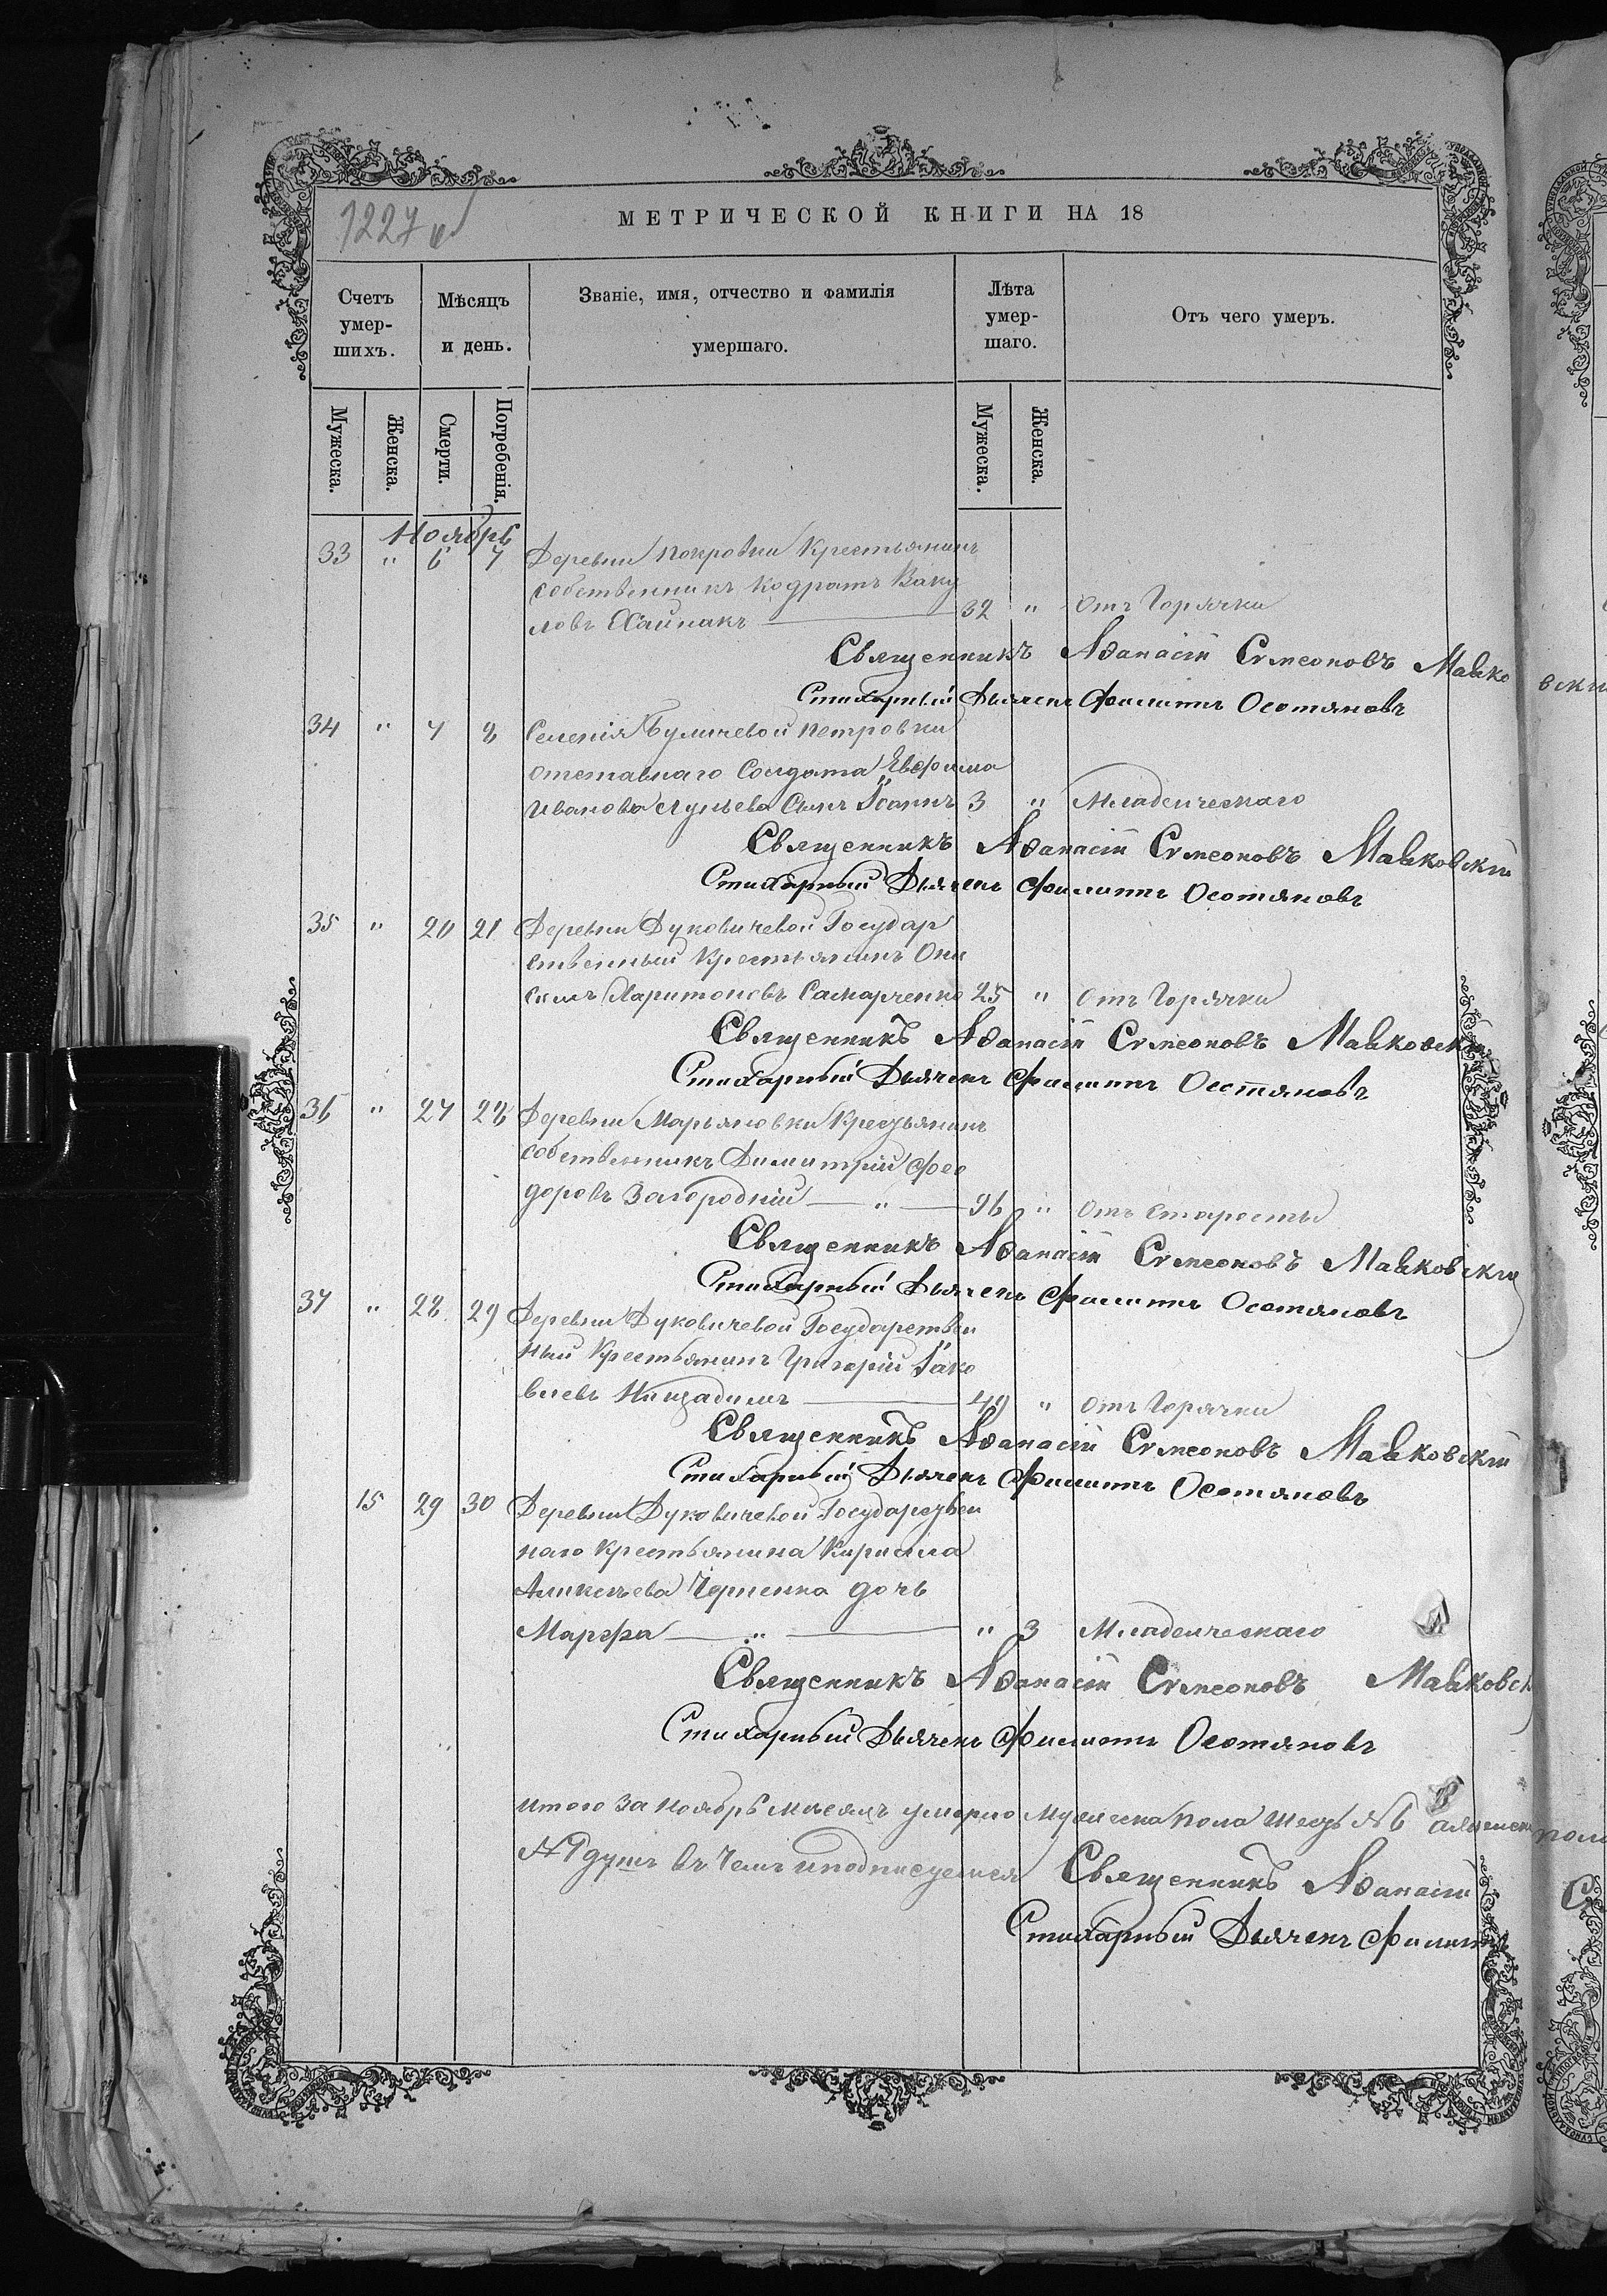 1227
МЕТРИЧЕСКОЙ КНИГИ НА 18
Счетъ умер-шихъ.
Мѣсяцъ и день.
Званіе, имя, отчество и фамилія умершаго.
Лѣта умер-шаго.
Отъ чего умеръ.
Мужеска.
Женска.
Смерти.
Погребенія.
Мужеска.
Женска.
Ноябрь
33 " 6 7 Деревни Покровки Крестьянинъ
собственникъ Кодратъ Ваку
ловъ Хайнакъ 32 " Отъ Горячки
Священникъ Аѳанасій Сѵмеоновъ Маьковскій
Стихарный Дьячекъ Филиппъ Осотяновъ
34 " 7 8 Селенія Буличевой Петровки
отставнаго Солдата Евфима
Иванова Сынъ Іоаннъ 3 " Младенческаго
Священникъ Аѳанасій Сѵмеоновъ Маьковскій
Стихарный Дьячекъ Филиппъ Осотяновъ
35 " 20 21 Деревни Дуковичевой Государ
ственный Крестьянинъ Они
симъ Харитоновъ Самарченко 25 " Отъ Горячки
Священникъ Аѳанасій Сѵмеоновъ Маьковскій
Стихарный Дьячекъ Филиппъ Осотяновъ
36 " 27 28 Деревни Марьяновки Кресьянинъ
собственникъ Димитрій Фео
доровъ Загородній " 96 " Отъ Старости
Священникъ Аѳанасій Сѵмеоновъ Маьковскій
Стихарный Дьячекъ Филиппъ Осотяновъ
37 " 28 29 Деревни Дуковичевой Государствен
ный Крестьянинъ Григорій Іако
влевъ 49 " Отъ Горячки
Священникъ Аѳанасій Сѵмеоновъ Маьковскій
Стихарный Дьячекъ Филиппъ Осотяновъ
15 29 30 Деревни Дуковичевой Государствен
наго Крестьянина Кирилла
Черненка дочь
Марфа " " 3 Младенческаго
Священникъ Аѳанасій Сѵмеоновъ Маьковск
Стихарный Дьячекъ Филиппъ Осотяновъ
Итого за Ноябрь Мѣсяцъ умерло Мужеска пола №6
душъ въ Чемъ и подписуемся Священникъ Аѳанасій
Стихарный Дьячекъ Филиппъ